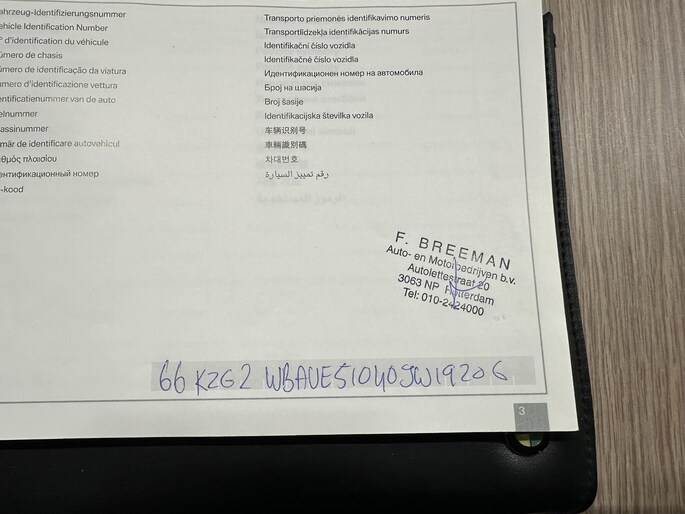 ahrzeug-Identifizierungsnummer
ehicle Identification Number
° d'identification du véhicule
úmero de chasis
úmero de identificação da viatura
umero d'identificazione vettura
entificatienummer van de auto
elnummer
assinummer
măr de identificare autovehicul
θμός πλαισίου
ентификационный номер
-kood
Transporto priemonės identifikavimo numeris
Transportlīdzekļa identifikācijas numurs
Identifikační číslo vozidla
Identifikačné číslo vozidla
Идентификационен номер на автомобила
Број на шасија
Broj šasije
Identifikacijska številka vozila
车辆识别号
車輛識別碼
차대번호
رقم تمييز السيارة
F. BREEMAN
Auto- en Motorbedrijven b.v.
Autolettestraat 20
3063 NP Rotterdam
Tel: 010-2424000
66 KZG 2 WBAUE51040JW19206
3